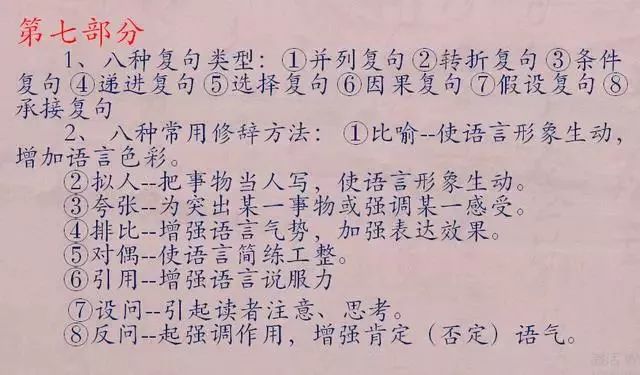 第七部分
1、八种复句类型：①并列复句②转折复句③条件
复句④递进复句⑤选择复句⑥因果复句⑦假设复句⑧
承接复句
2、 八种常用修辞方法： ①比喻--使语言形象生动，
增加语言色彩。
②拟人--把事物当人写，使语言形象生动。
③夸张--为突出某一事物或强调某一感受。
④排比--增强语言气势，加强表达效果。
⑤对偶--使语言简练工整。
⑥引用--增强语言说服力
⑦设问--引起读者注意、思考。
⑧反问--起强调作用，增强肯定（否定）语气。
激活 W